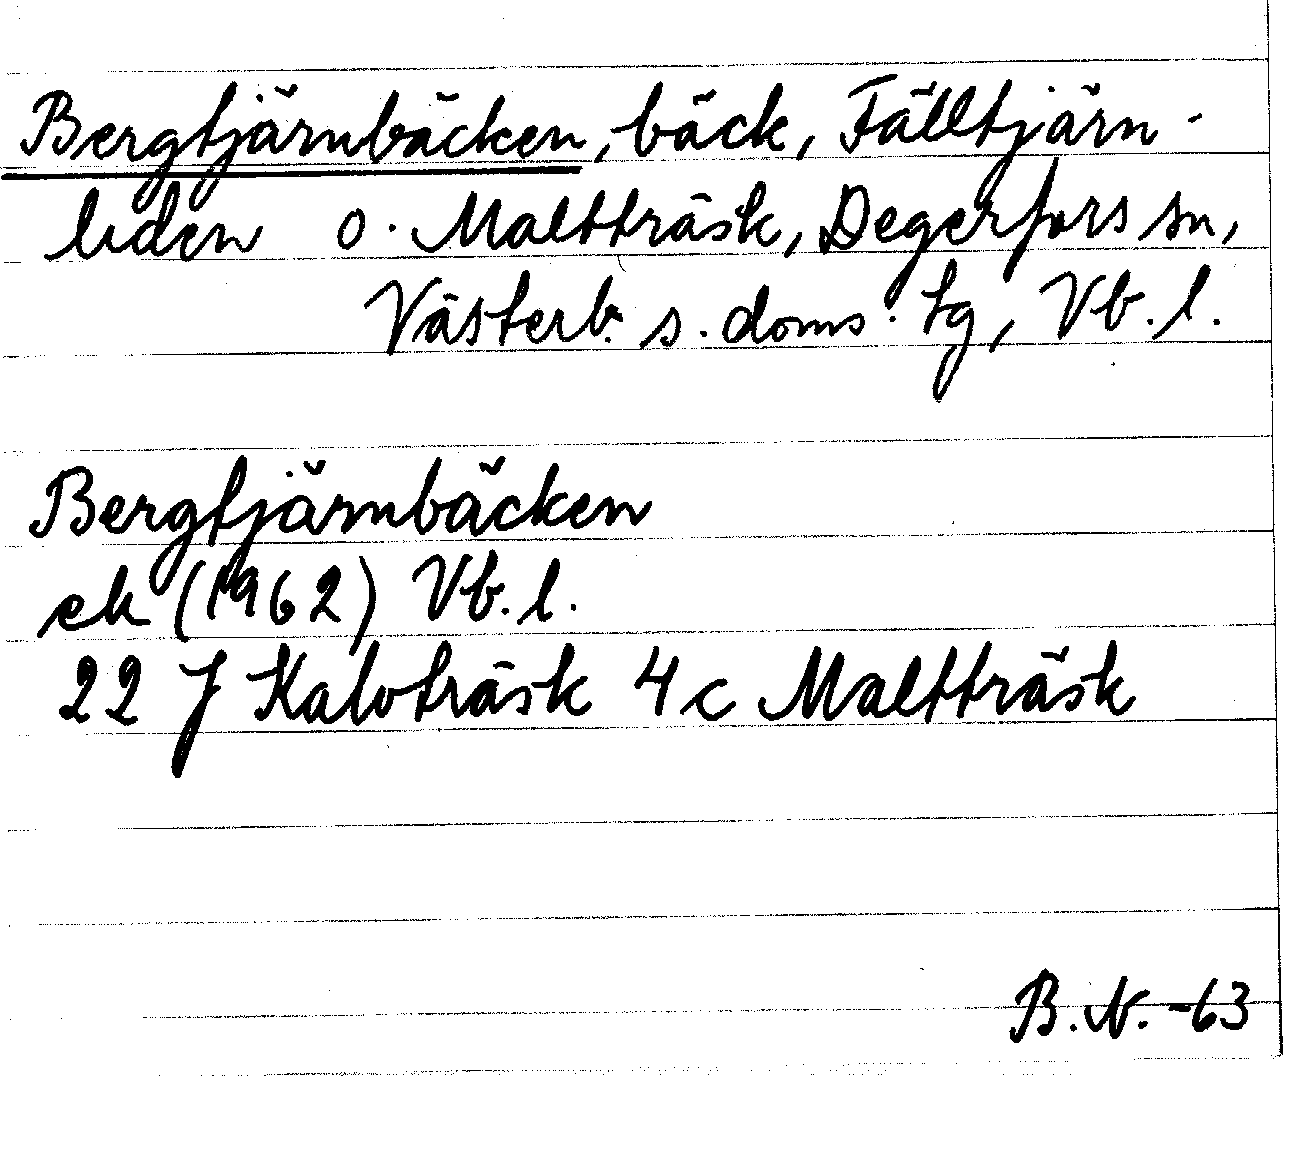 Bergtjärnbäcken, bäck, Fälltjärn-
liden o. Maltträsk, Degerfors sn,
Västerb. s. doms. tg, Vb. l.
Bergtjärnbäcken
ek (1962) Vb. l.
22 J Kalvträsk 4 c Maltträsk
B. N. -63